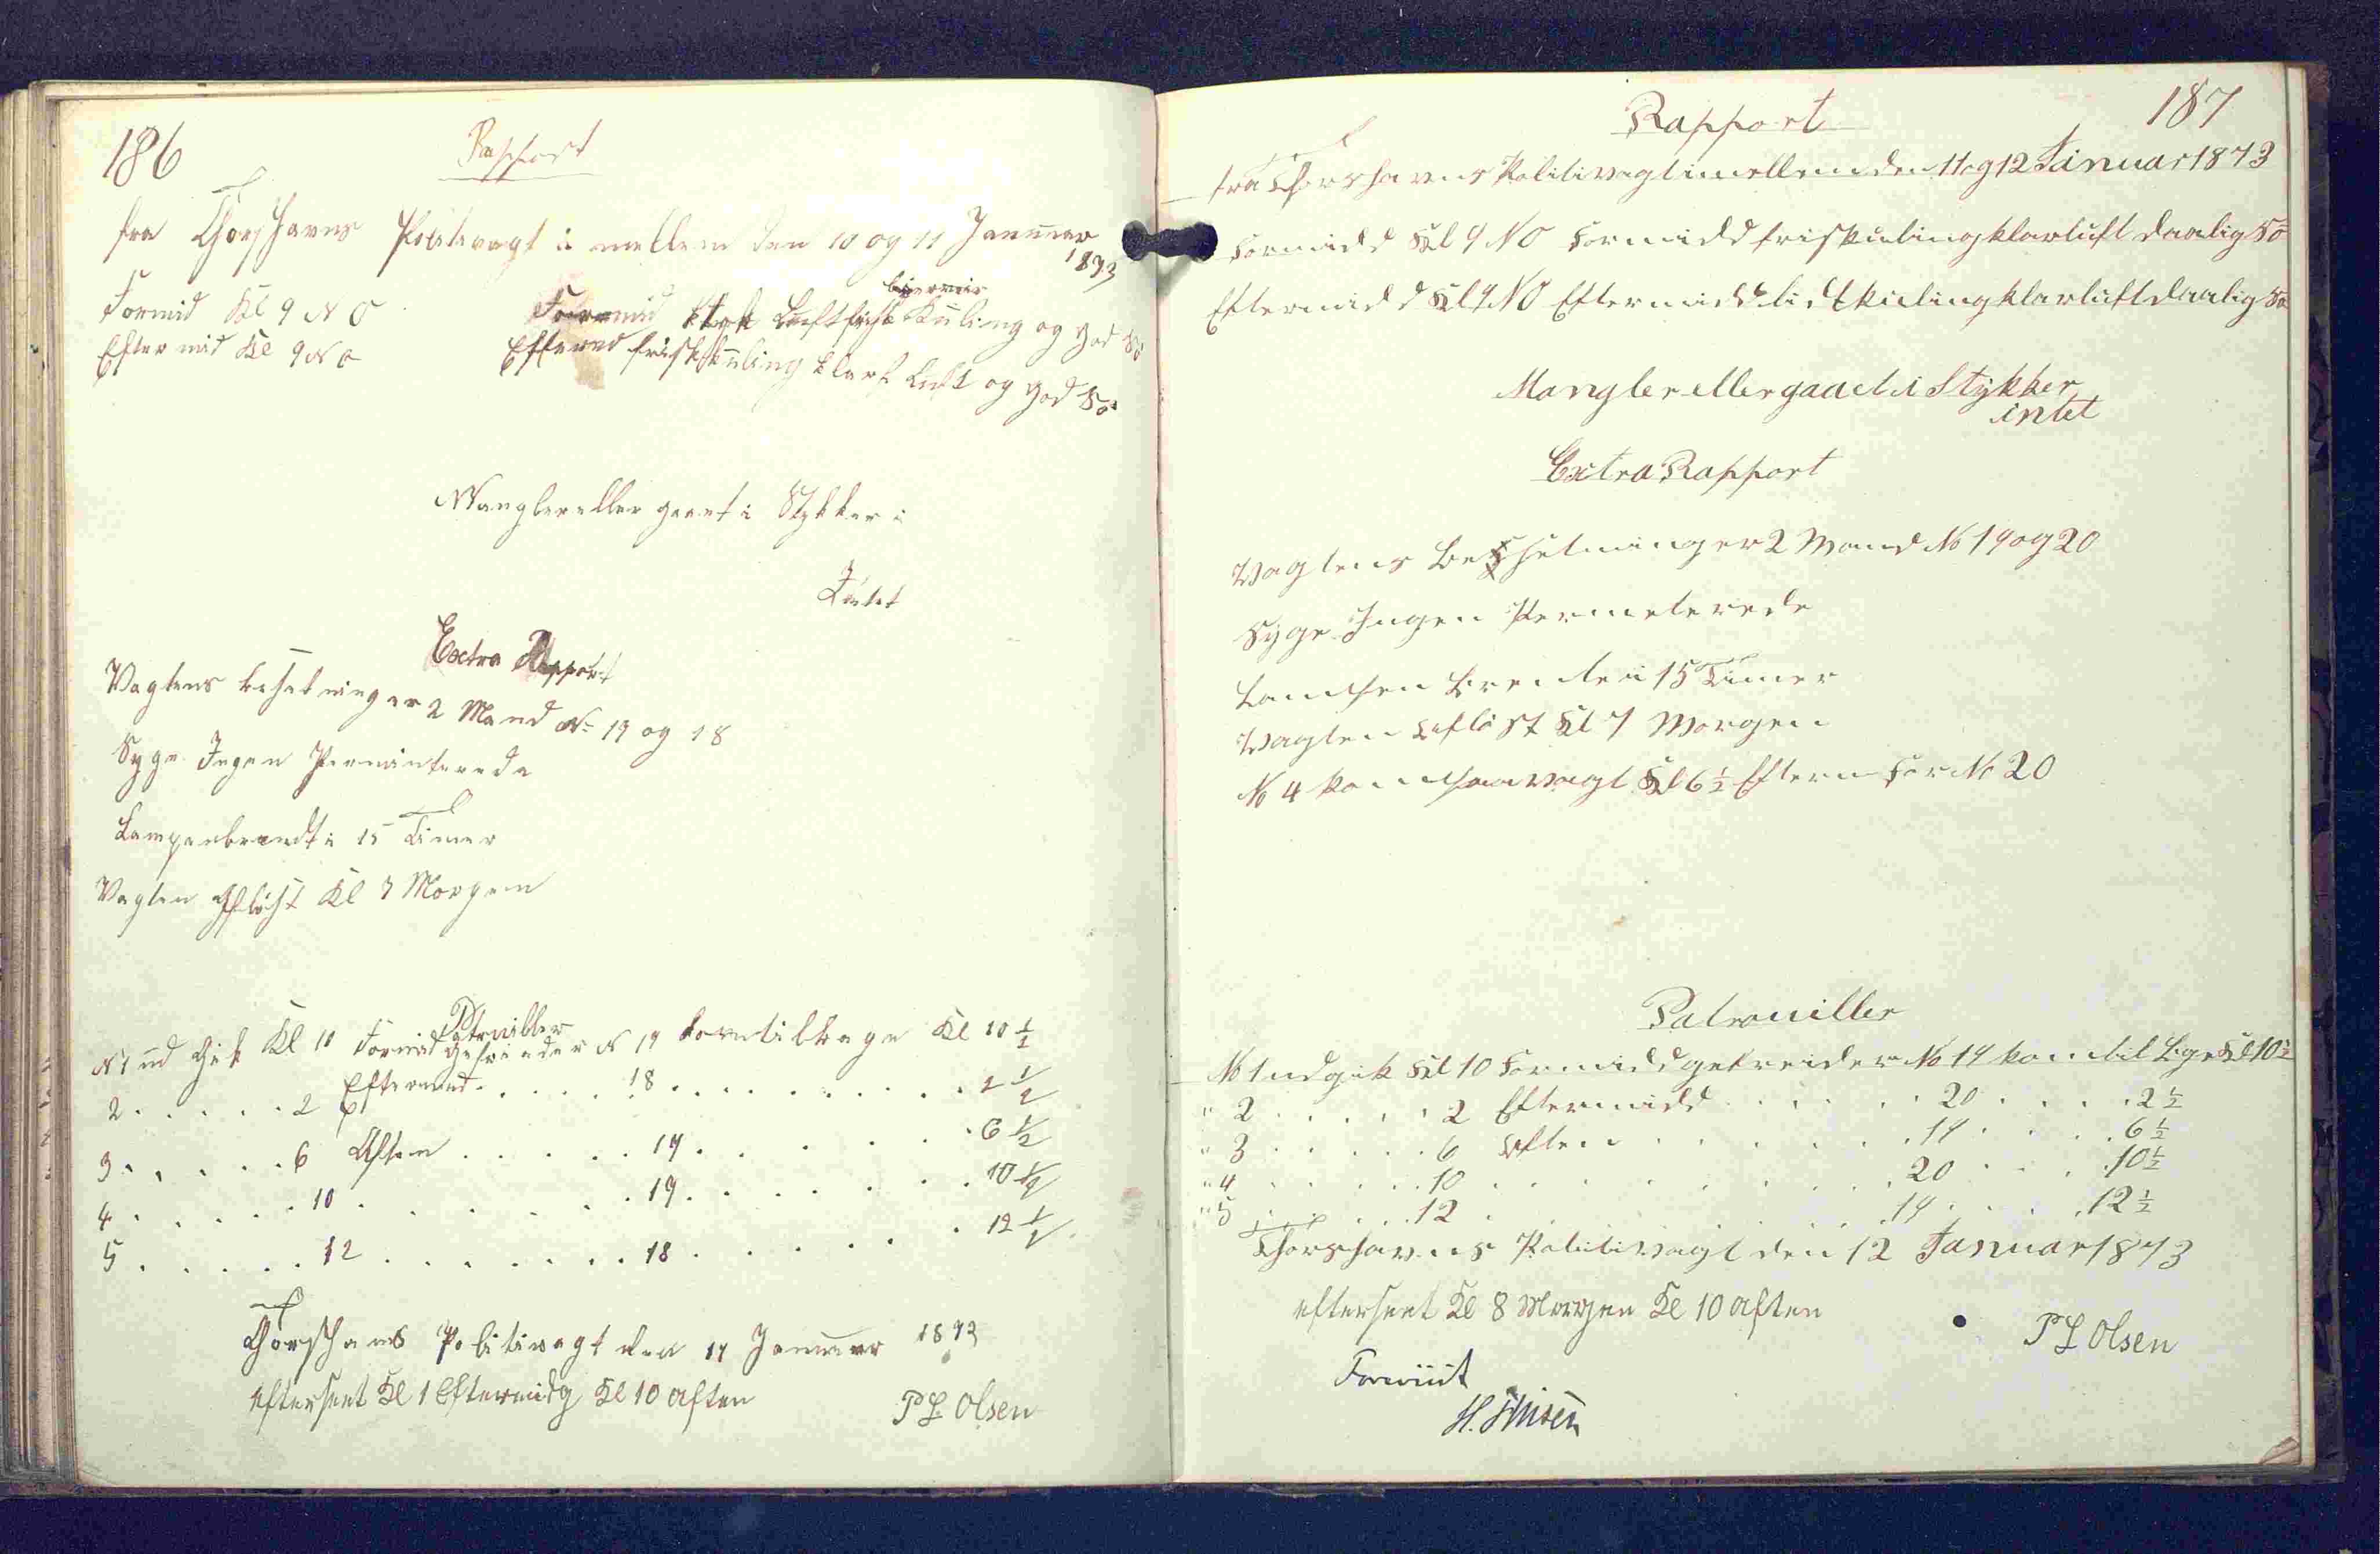 186
Rapport
fra Thorshavns Politivagt i mellem den 10 og 11 Januar
1873
Formid Kl 9 N O
Formid klar Luft frisk Kuling og god Sö
Efter mid Kl 9 N O
Eftermd frisk Kuling klar Luft og god Sö
Mangler eller gaaet i Stykker i
Intet
Extra Rapport
Vagtens besetninger 2 Mand No 19 og 18
Syge Ingen Permitterede
Lampen brendt i 15 Timer
Vagten Aflöst Kl 7 Morgen
Patruiller
N 1 ud Gik Kl 10 Formid Gefreider N 19 kom tilbage Kl 10 1/2
2 . . . . . 2 Eftermid . . . . . 18 . . . . . . . . 2 1/2
3 . . . . . 6 Aften . . . . . 19 . . . . . 6 1/2
4 . . . . . 10 . . . . . . 19 . . . . . . 10 1/2
5 . . . . . 12 . . . . . . . 18 . . . . . . 12 1/2
Thorshavns Politivagt den 11 Januar 1873
efterseet Kl 1 Eftermidg Kl 10 Aften
P L Olsen
187
Rapport
fra Thorshavns Politivagt imellem den 11 og 12 Januar 1873
Formidd Kl 9 NO Formidd frisk kuling klar luft daarlig Sö
Eftermidd Kl 9 NO Eftermidd lidt kuling klar luft daarlig Sö
Mangler eller gaaet i Stykker
intet
Extra Rapport
Vagtens Besetninger 2 Mand No 19 og 20
Syge Ingen Permeterede
Lampen Brende i 15 Timer
Vagten Aflöst Kl 7 Morgen
No 4 kom paa vagt Kl 6 1/2 Efterm for No 20
Patrouiller
No 1 udgik Kl 10 Formidd gefreider No 19 kom tilbge Kl 10 1/2
" 2 . . . . . 2 Eftermidd . . . . . 20 . . . . 2 1/2
" 3 . . . . . 6 Aften . . . . . . 19 . . . . 6 1/2
" 4 . . . . . 10 . . . . . . . . 20 . . . . 10 1/2
" 5 . . . . . 12 . . . . . . . . 19 . . . . 12 1/2
Thorshavns Politivagt den 12 Januar 1873
efterseet Kl 8 Morgen Kl 10 Aften
P L Olsen
Forevist
H.